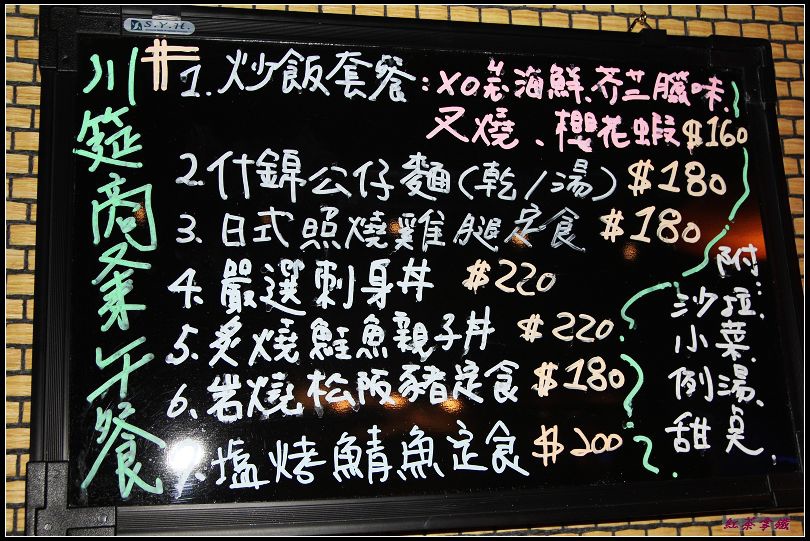 S.Y.H.
川筵商業午餐
1. 炒飯套餐:XO醬海鮮、芥蘭臘味、
叉燒、櫻花蝦$160
2.什錦公仔麵(乾/湯) $180
3.日式照燒雞腿定食 $180
4.嚴選刺身丼 $220
5.炙燒鮭魚親子丼 $220
6.岩燒松阪豬定食 $180
7.塩烤鯖魚定食 $200
附:
沙拉、
小菜、
例湯、
甜桌